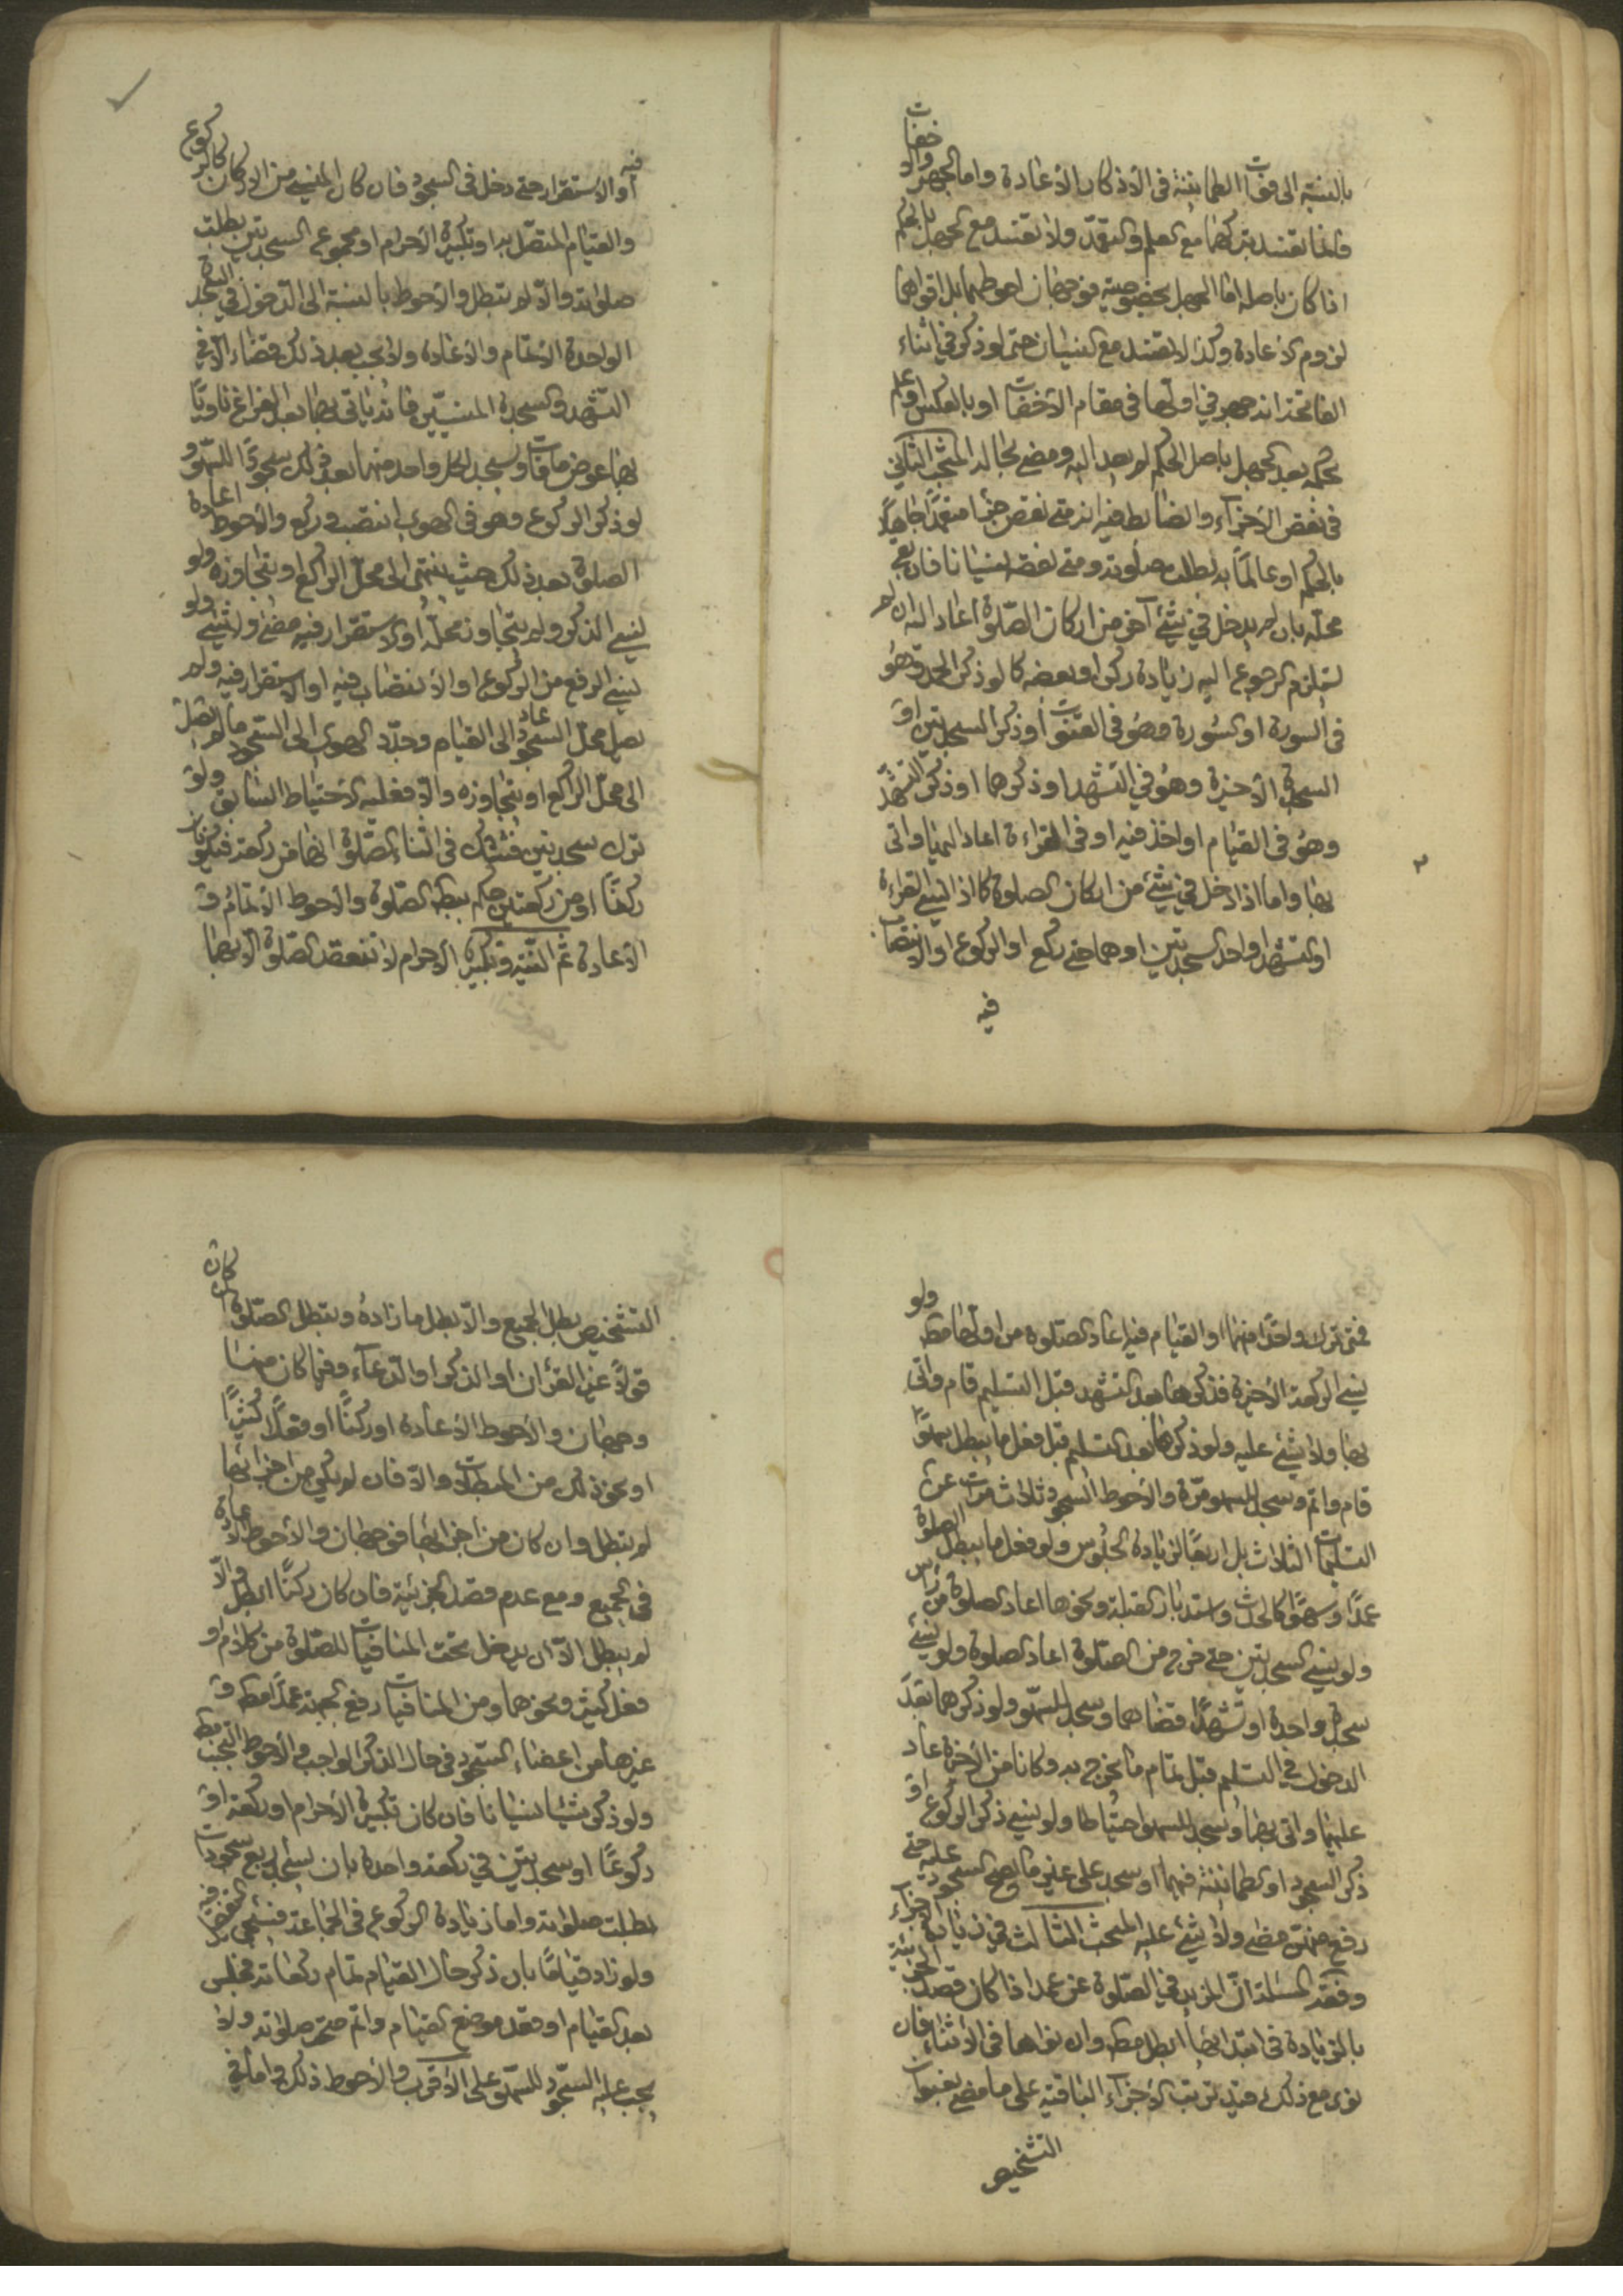 بالنسبة الى فوات الطمانينة في الأذكار الأعادة واما الجهر والأخفات
فانما تفسد بتركهما مع العلم والتعمد ولا تفسد مع الجهل بالحكم
اذا كان باصله اما الجهل بخصوصيته فوجهان احوطهما بل اقواهما
لزوم الاعادة وكذا لا تفسد مع النسيان حتى لو ذكر في اثناء
الفاتحة انه جهر في اولها في مقام الأخفات او بالعكس او علم
حكمه بعد الجهل باصل الحكم لم يعد اليه ومضى بحاله المبحث الثاني
في نقص الأجزاء والضابط فيه انه متى نقص جزءا متعمدا جاهلا
بالحكم او عالما به بطلت صلوته ومتى نقصه نسيانا فان بقي
محله بان لم يدخل في شئ آخر من اركان الصلوة اعاد اليه ان لم
يستلزم الرجوع اليه زيادة ركن او بعضه كما لو ذكر الحمد وهو
في السورة او السورة وهو في القنوت او ذكر السجدتين او
السجدة الأخيرة وهو في التشهد او ذكرهما او ذكر التشهد
وهو في القيام او اخذ فيه او في القراءة اعاد اليها واتى
بها واما اذا دخل في شئ من اركان الصلوة كما اذا نسي القراءة
او التشهد او احد السجدتين او هما حتى ركع او الركوع او الانتصاب
فيه
فيه
او الأستقرار حتى دخل في السجود فان كان المنسي من الاركان كالركوع
والقيام المتصل به او تكبيرة الأحرام او مجموع السجدتين بطلت
صلوته والا لم تبطل والأحوط بالنسبة الى الدخول في السجدة
الواحدة الأتمام والأعادة ولا يجب بعد ذلك قضاء الا في
التشهد والسجدة المنسيين فانه ياتي بهما بعد الفراغ ناويا
بهما عوض ما فات ويسجد لكل واحد منهما بعد ذلك سجود السهو و
لو ذكر الركوع وهو في الهوي انتصب وركع والأحوط اعادة
الصلوة بعد ذلك حيث ينتهي الى محل الراكع او يتجاوزه ولو
نسي الذكر ولم يتجاوز محله او الاستقرار فيه مضى ولا شئ ولو
نسي الرفع من الركوع او الأنتصاب فيه او الاستقرار فيه ولم
يصل محل السجود عاد الى القيام وجدد الهوي الى السجود ما لم يصل
الى محل الراكع او يتجاوزه والا فعليه الأحتياط السابق ولو
ترك سجدتين فشك في اثناء الصلوة انهما من ركعة فيكونان
ركنا او من ركعتين حكم ببطلان الصلوة والأحوط الأتمام و
الأعادة ثم النية وتكبيرة الأحرام لا تنعقد الصلوة الا بهما
فمتى ترك واحدا منهما او القيام فيه اعاد الصلوة من اولها مطلقا ولو
نسي الركعة الأخيرة فذكرها بعد التشهد قبل التسليم قام واتى
بها ولا شئ عليه ولو ذكرها بعد التسليم قبل فعل ما يبطل سهوا
قام واتم وسجد للسهو مرة والأحوط السجود ثلاث مرات عن
التسليمات الثلاث بل اربعا لزيادة الجلوس ولو فعل ما يبطل الصلوة
عمدا وسهوا كالحدث واستدبار القبلة ونحوها اعاد الصلوة من راس
ولو نسي السجدتين حتى خرج من الصلوة اعاد الصلوة ولو نسي
سجدة واحدة او تشهدا قضاهما وسجد للسهو ولو ذكرهما بعد
الدخول في التسليم قبل تمام ما يخرج به وكانا من الأخيرة عاد
عليهما واتى بهما وسجد للسهو احتياطا ولو نسي ذكر الركوع او
ذكر السجود او الطمانينة فيهما او سجد على غير ما يصح السجود عليه حتى
رفع جبهته مضى ولا شئ عليه المبحث الثالث في زيادة الأجزاء
وفقه المسئلة ان المزيد في الصلوة عن عمد اذا كان قصد الجزئية
بالزيادة في ابتدائها ابطل مطلقا وان نواها في الأثناء فان
نوى مع ذلك قيد ترتب الأجزاء الباقية على ما مضى بعنوان
التشخيص
التشخيص بطل الجميع والا بطل ما زاده وتبطل الصلوة ان كان
قولا غير القرآن او الذكر او الدعاء وفيما كان منها
وجهان والأحوط الأعادة او ركنا او فعلا كثيرا
او نحو ذلك من المبطلات والا فان لم يكن من اجزائها
لم تبطل وان كان من اجزائها فوجهان والأحوط الاعادة
في الجميع ومع عدم قصد الجزئية فان كان ركنا ابطل والا
لم يبطل الا ان يدخل تحت المنافيات للصلوة من كلام او
فعل كثير ونحوهما ومن المنافيات رفع الجبهة عمدا مطلقا و
غيرها من اعضاء السجود في حال الذكر الواجب والأحوط التجنب مطلقا
ولو ذكر شيئا نسيانا فان كان تكبيرة الأحرام او ركعة او
ركوعا او سجدتين في ركعة واحدة بان يسجد اربع سجودات
بطلت صلوته واما زيادة الركوع في الجماعة فسيجئ
ولو زاد قياما بان ذكر حال القيام تمام ركعاته فجلس
بعد القيام او قعد موضع القيام واتم صحت صلوته ولا
يجب عليه السجود للسهو على الأقرب والأحوط ذلك واما في